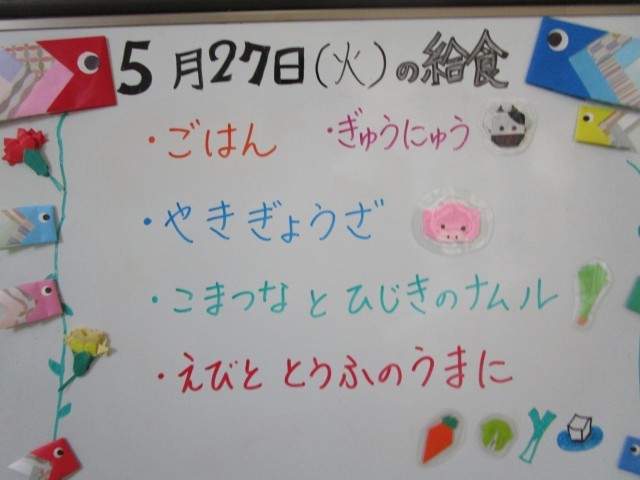 5月27日(火)の給食
・ごはん ・ぎゅうにゅう
・やきぎょうざ
・こまつなとひじきのナムル
・えびととうふのうまに